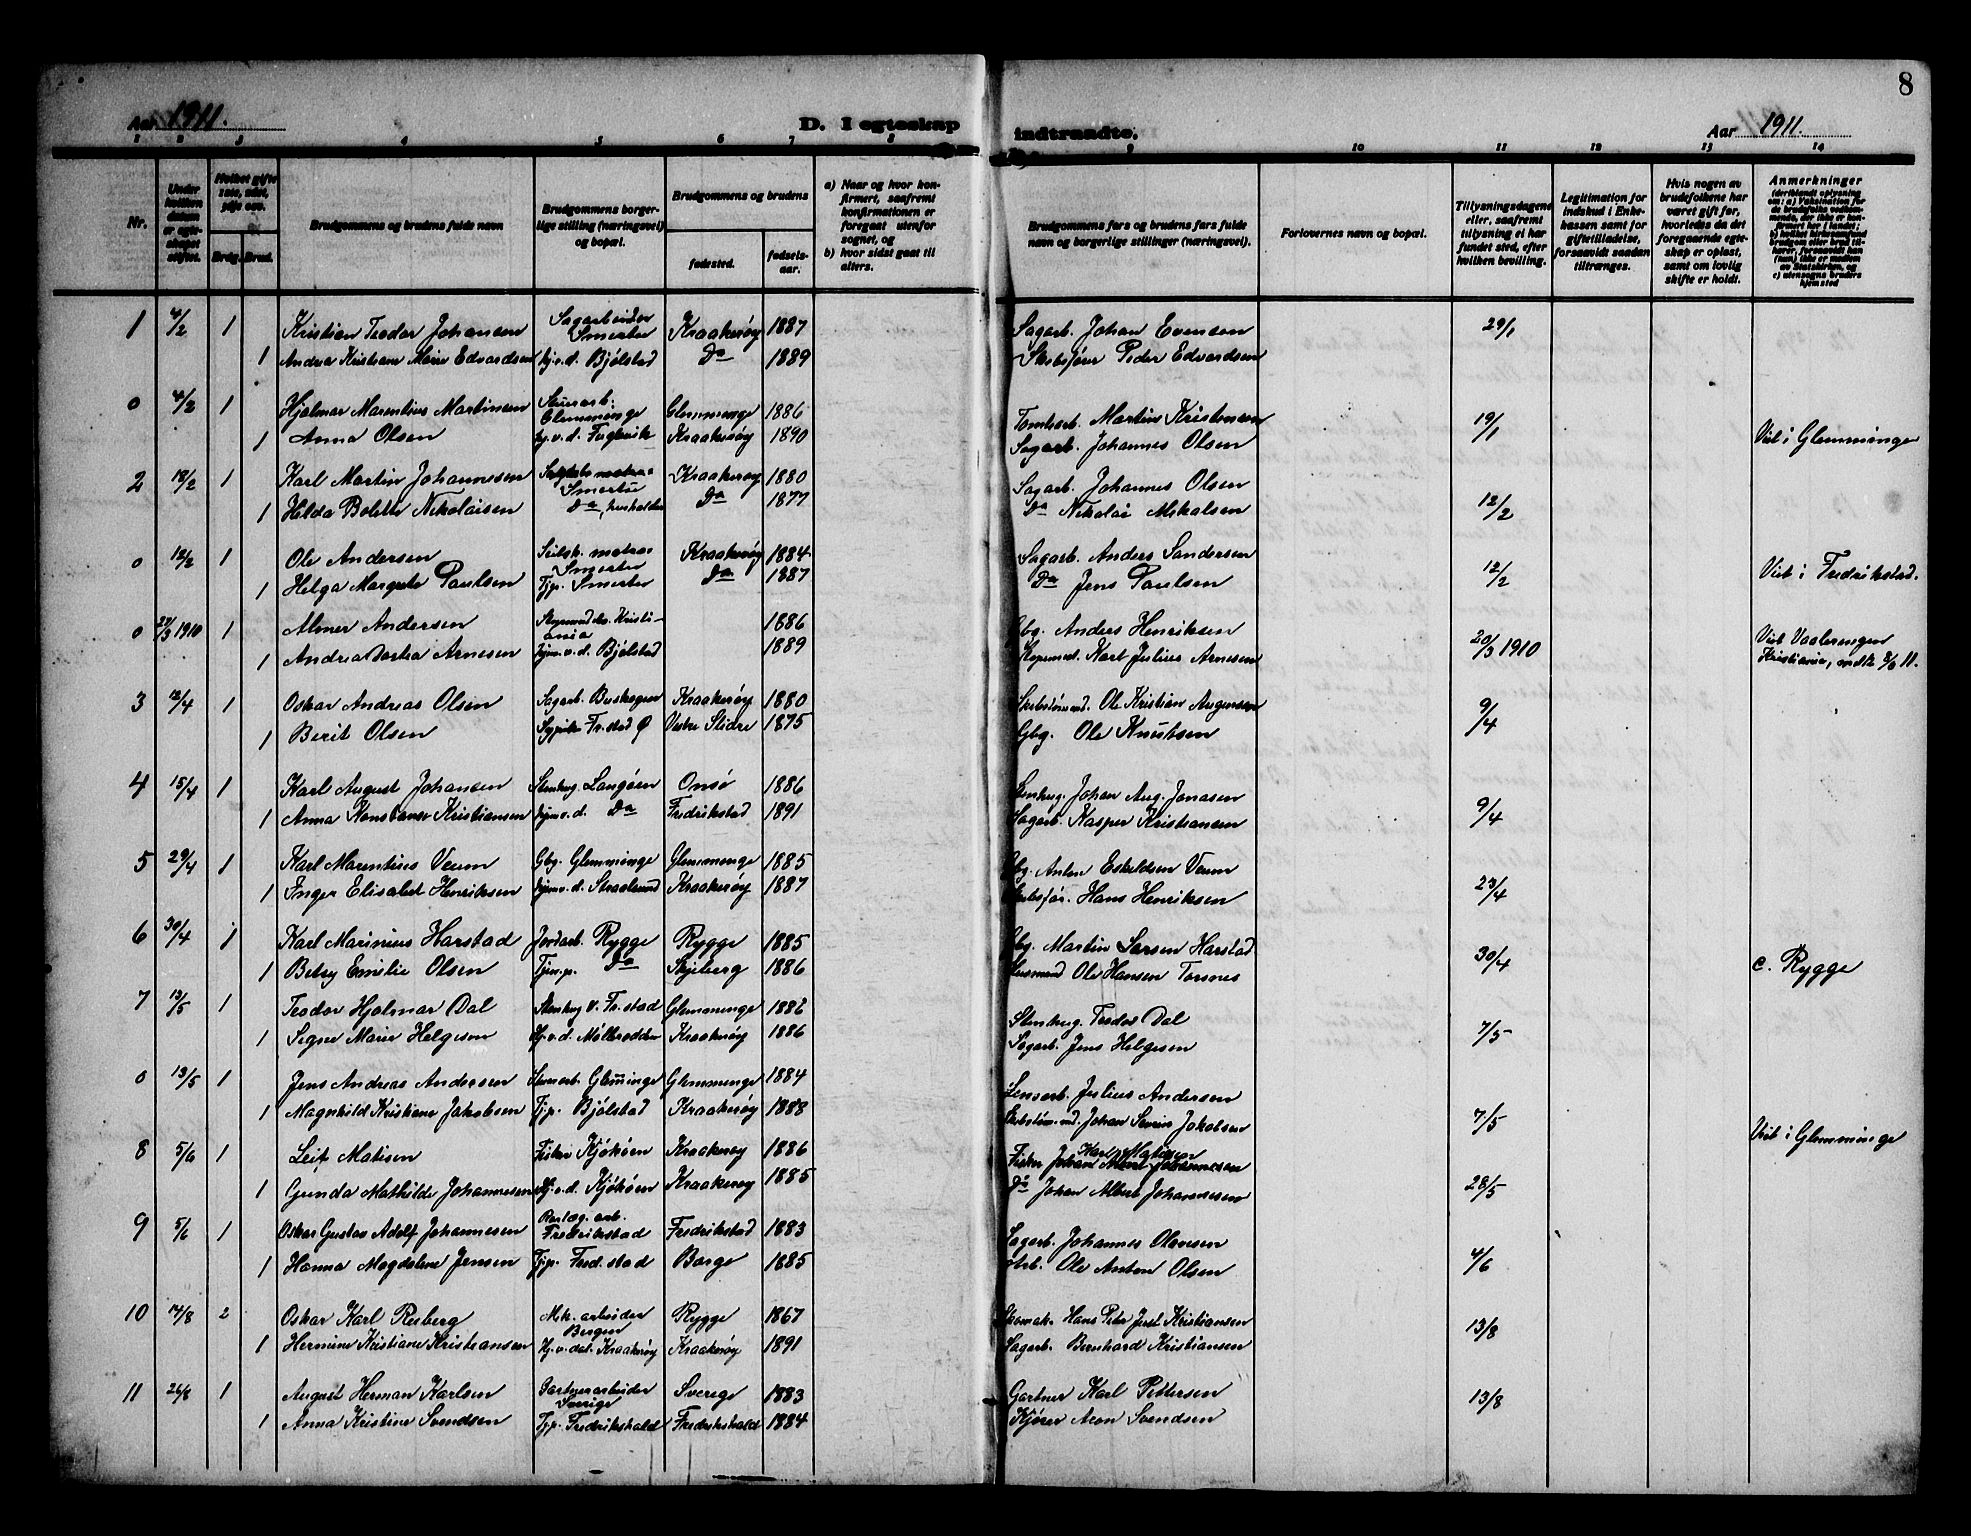 8
Aar 1911.
D. I egteskap indtraadte.
Aar 1911.
1 2 3 4 5 6 7 8 9 10 11 12 13 14
Nr.
Under hvilken datum er egteskapet stiftet.
Hvilket gifte 1ste, 2det, 3dje osv.
Brdg. Brud.
Brudgommens og brudens fulde navn
Brudgommens borgerlige stilling (næringsvei) og bopæl.
Brudgommens og brudens
fødested.
fødselsaar.
a) Naar og hvor konfirmert, saafremt konfirmationen er foregaat utenfor sognet, og
b) hvor sidst gaat til alters.
Brudgommens fars og brudens fars fulde navn og borgerlige stillinger (næringsvei).
Forlovernes navn og bopæl.
Tillysningsdagene eller, saafremt tillysning ei har fundet sted, efter hvilken bevilling.
Legitimation for indskud i Enkekassen samt for giftetilladelse, forsaavidt saadan tiltrænges.
Hvis nogen av brudefolkene har været gift før, hvorledes da det foregaaende egteskap er opløst, samt om lovlig skifte er holdt.
Anmerkninger
1 4/2 1 Kristian Teodor Johansen Sagarbeider Smertu Kraakerøy 1887 Sagarb. Johan Evensen 29/1
1 Andrea Kristiane Marie Edvardsen hj.v.d. Bjølstad Do 1889 Skibsfører Peder Edvardsen
0 4/2 1 Hjalmar Marentius Martinsen Glemminge Glemminge 1886 Tomtearb. Martin Kristensen 19/1
1 Anna Olsen hj.v.d. Fuglevik Kraakerøy 1890 Sagarb. Johannes Olsen Viet i Glemminge
2 18/2 1 Karl Martin Johannesen Smertu Kraakerøy 1880 Sagarb. Johannes Olsen 12/2
1 Hilda Bolette Nikolaisen Do, husholder Do 1877 Do Nikolai Mikalsen
0 18/2 1 Ole Andersen Seilsk. matros Smertu Kraakerøy 1884 Sagarb. Anders Sandersen 12/2
1 Helga Margrete Paulsen Tjp. Smertu Do 1887 Do Jens Paulsen Viet i Fredrikstad.
0 27/3 1910 1 Almer Andersen Kristiania 1886 Gbg. Anders Henriksen 20/3 1910
1 Andrea Dortea Arnesen hjm.v.d. Bjølstad 1889 Karl Julius Arnesen Viet Vaalerengen Kristiania,
3 12/4 1 Oskar Andreas Olsen Sagarb. Buskogen Kraakerøy 1880 Ole Kristian Augensen 9/4
1 Berit Olsen Sypike Fr.stad Ø Vestre Slidre 1875 Gbg. Ole Knutsen
4 15/4 1 Karl August Johansen Stenhug. Langøen Onsø 1886 Stenhug. Johan Aug. Jonasen 9/4
1 Anna Konstanse Kristiansen hjm.v.d. Do Fredrikstad 1891 Sagarb. Kasper Kristiansen
5 29/4 1 Karl Marentius Veum Gbg. Glemminge Glemminge 1885 Gbg. Anton Eskildsen Veum 23/4
1 Inger Elisabet Henriksen hjm.v.d. Straalsund Kraakerøy 1887 Skibsfør. Hans Henriksen
6 30/4 1 Karl Marinius Harstad Jordarb. Rygge Rygge 1885 Gbg. Martin Larsen Harstad 30/4
1 Betsy Emilie Olsen Tjen.p. Do Skjeberg 1886 Husmand Ole Hansen Torsnes c. Rygge
7 13/5 1 Teodor Hjalmar Dal Stenhug v. Fr.stad Glemminge 1882 Stenhug. Teodor Dal 7/5
1 Signe Marie Helgesen Hj.v.d. Møllerodden Kraakerøy 1886 Sagarb. Jens Helgesen
0 13/5 1 Jens Andreas Andersen Glemminge Glemminge 1884 Julius Andersen 7/5
1 Magnhild Kristiane Jakobsen Tjp. Bjølstad Kraakerøy 1888 Johan Severin Jakobsen Viet i Glemminge
8 5/6 1 Leif Matisen Fisker Kjøkøen Kraakerøy 1886 Fisker Karl Matisen 28/5
1 Gunda Mathilde Johannesen Hj.v.d. Kjøkøen Kraakerøy 1885 Do Johan Albert Johannesen
9 5/6 1 Oskar Gustav Adolf Johannesen Fredrikstad Fredrikstad 1883 Sagarb. Johannes Olavesen 4/6
1 Hanna Magdalene Jensen Tjp. Fred.stad Borge 1885 Arb. Ole Anton Olsen
10 14/8 2 Oskar Karl Reiberg Mek. arbeider Bergen Rygge 1867 Skomak. Hans Peter Just Kristiansen 13/8
1 Hermine Kristiane Kristiansen Hj.v.dat. Kraakerøy Kraakerøy 1891 Sagarb. Bernhard Kristiansen
11 26/8 1 August Herman Karlsen Gartnerarbeider Sverige Sverige 1883 Gartner Karl Pettersen 13/8
1 Anna Kristine Svendsen Tjp. Fredrikshald Fredrikshald 1884 Kjører Aron Svendsen